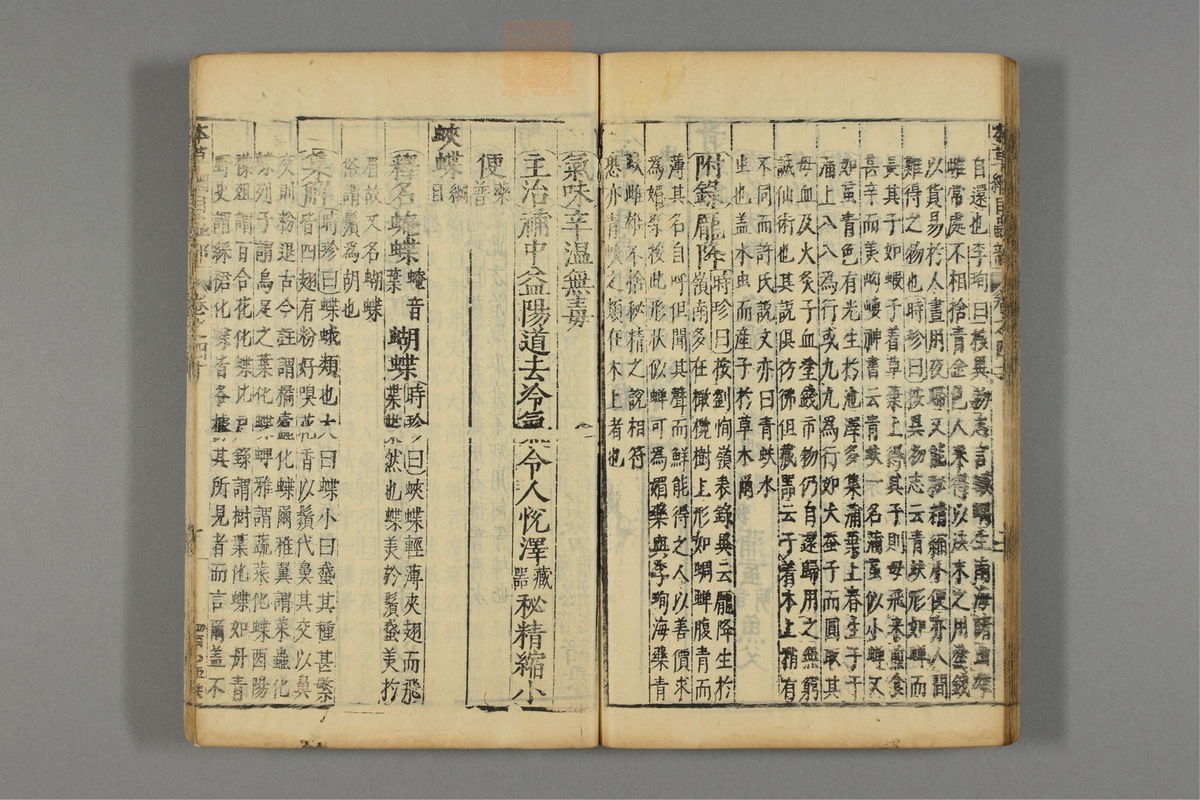 自還也李珣曰按異物志言生南海諸山雄
雌常處不相捨青金色人采得以法末之用塗錢
以貨易於人晝用夜歸又能秘精縮小便亦人間
難得之物也時珍曰按異物志云青蚨形如蟬而
長其子如蝦子着草葉上得其子則母飛來煎食
甚辛而美岣嶁神書云青蚨一名蒲䖟似小蟬又
如䖟青色有光生於池澤多集蒲葉上春生子于
蒲上八八為行或九九為行如大蚕子而圓取其
母血及火炙子血塗錢市物仍自還歸用之無窮
誠仙術也其說俱彷彿但藏器云子着木上稍有
不同而許氏說文亦曰青蚨水
虫也盖水虫而産子於草木爾
附錄龎降時珍曰按劉恂嶺表錄異云龎降生於
嶺南多在橄欖樹上形如蜩蟬腹青而
薄其名自呼但聞其聲而鮮能得之人以善價求
為媚藥按此形狀似蟬可為媚藥與李珣海藥青
蚨雌雄不捨秘精之說相符
恐亦青蚨之類在木上者也
氣味辛溫無毒
主治補中益陽道去冷氣令人悅澤藏器秘精縮小
便藥譜
蛺蝶綱目
釋名蜨蝶蜨音葉蝴蝶時珍曰蛺蝶輕薄夾翅而飛
葉葉然也蝶美於鬚蛾美於
眉故又名蝴蝶
俗謂鬚為胡也
集解時珍曰蝶蛾類也大曰蝶小曰蛾其種甚繁
皆四翅有粉好嗅花香以鬚代鼻其交以鼻
交則粉退古今註謂橘蠹化蝶爾雅翼謂菜蟲化
蝶列子謂烏足之葉化蝶埤雅謂蔬菜化蝶酉陽
雜俎謂百合花化蝶北戶錄謂樹葉化蝶如丹青
野史謂綵裙化蝶皆各據其所見者而言爾盖不